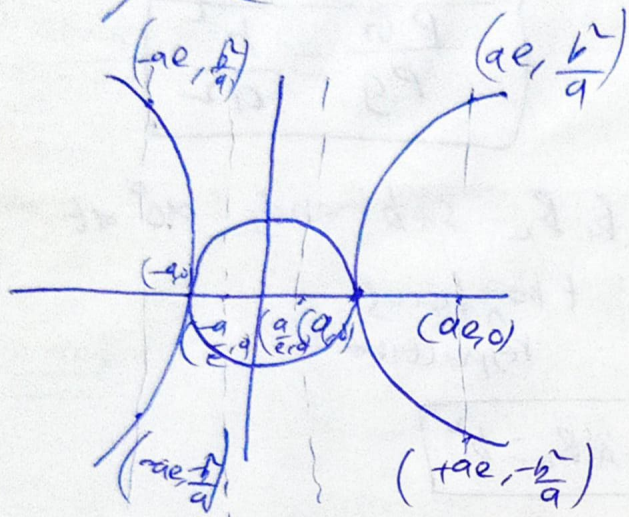 (-ae, b²/a)
(ae, b²/a)
(-a,0)
(-a/e, 0)
(a/e, 0)
(a,0)
(ae,0)
(-ae, -b²/a)
(+ae, -b²/a)